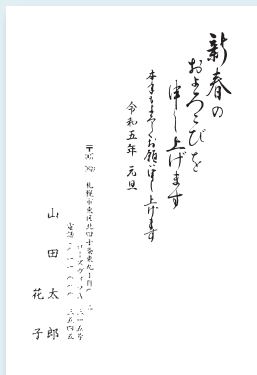 新春の
およろこびを
申し上げます
本年もよろしくお願い申し上げます
令和五年 元旦
〒
札幌市東区北四十条東九丁目
電話
山田太郎
花子